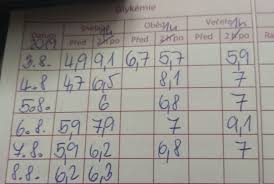 Glykémie
Datum Snídaně 1h Oběd 1h Večeře 1h
2019 Před 2h po Před 2h po Před 2h po
3.8. 4,9 9,1 6,7 5,7 5,9
4.8 4,7 6,5 8,1 7
5.8. 6 6,8 7
6.8. 5,9 7,9 7 9,1
7.8. 5,9 6,2 6,8 7
8.8. 6,2 6,3